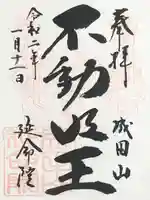 奉拝
成田山
不動明王
延命院
令和二年
一月十一日